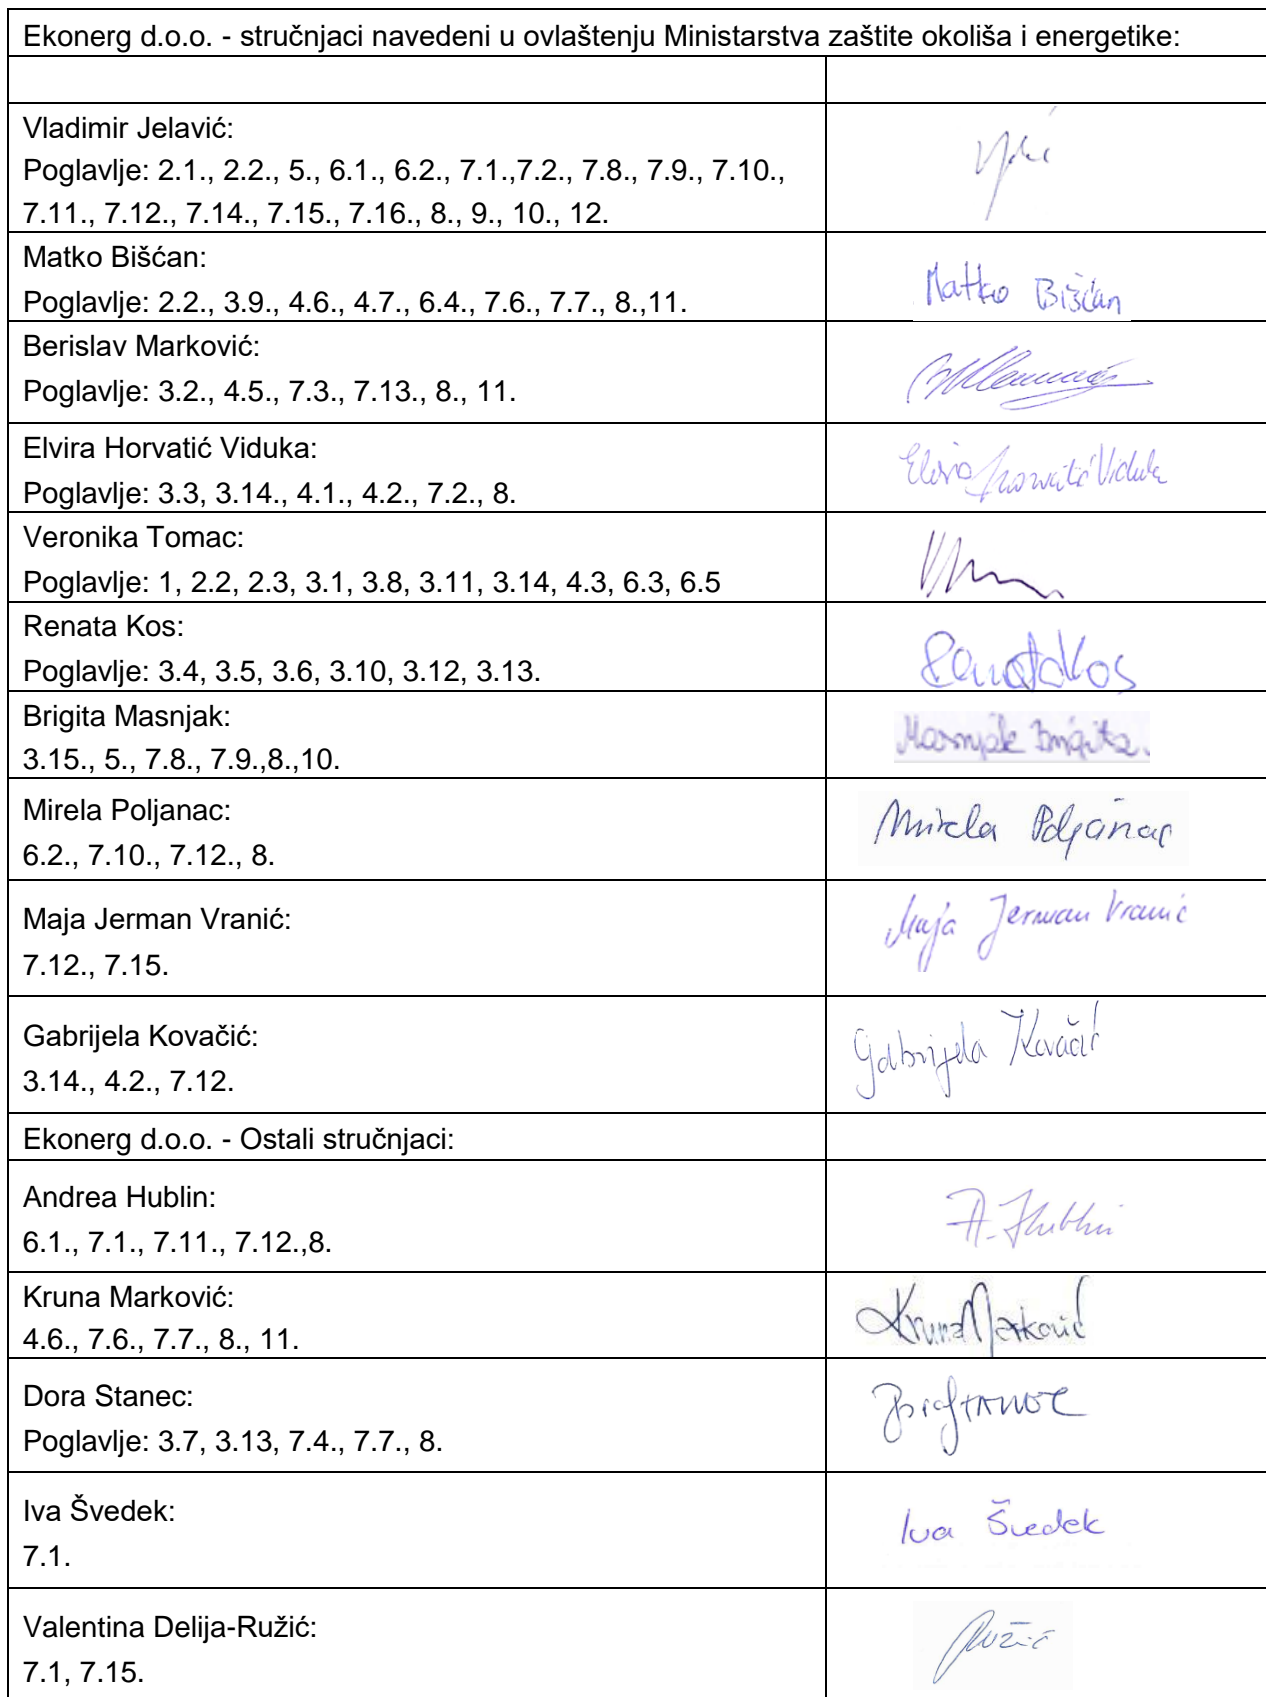 Ekonerg d.o.o. - stručnjaci navedeni u ovlaštenju Ministarstva zaštite okoliša i energetike:
Vladimir Jelavić:
Poglavlje: 2.1., 2.2., 5., 6.1., 6.2., 7.1.,7.2., 7.8., 7.9., 7.10.,
7.11., 7.12., 7.14., 7.15., 7.16., 8., 9., 10., 12.
Matko Bišćan:
Poglavlje: 2.2., 3.9., 4.6., 4.7., 6.4., 7.6., 7.7., 8.,11.
Matko Bišćan
Berislav Marković:
Poglavlje: 3.2., 4.5., 7.3., 7.13., 8., 11.
Elvira Horvatić Viduka:
Poglavlje: 3.3, 3.14., 4.1., 4.2., 7.2., 8.
Elvira Horvatić Viduka
Veronika Tomac:
Poglavlje: 1, 2.2, 2.3, 3.1, 3.8, 3.11, 3.14, 4.3, 6.3, 6.5
Renata Kos:
Poglavlje: 3.4, 3.5, 3.6, 3.10, 3.12, 3.13.
Renata Kos
Brigita Masnjak:
3.15., 5., 7.8., 7.9.,8.,10.
Masnjak Brigita.
Mirela Poljanac:
6.2., 7.10., 7.12., 8.
Mirela Poljanac
Maja Jerman Vranić:
7.12., 7.15.
Maja Jerman Vranić
Gabrijela Kovačić:
3.14., 4.2., 7.12.
Gabrijela Kovačić
Ekonerg d.o.o. - Ostali stručnjaci:
Andrea Hublin:
6.1., 7.1., 7.11., 7.12.,8.
A. Hublin
Kruna Marković:
4.6., 7.6., 7.7., 8., 11.
Kruna Marković
Dora Stanec:
Poglavlje: 3.7, 3.13, 7.4., 7.7., 8.
Iva Švedek:
7.1.
Iva Švedek
Valentina Delija-Ružić:
7.1, 7.15.
Ružić